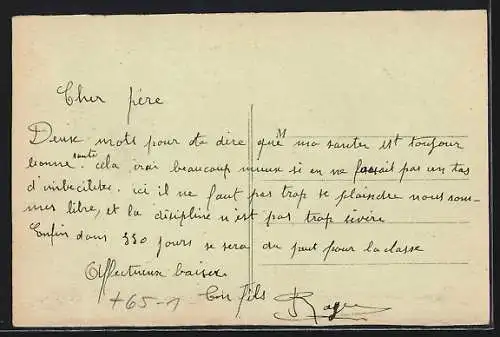 Cher père
Deux mots pour te dire que ma santer est toujour
bonne santé cela irai beaucoup mieux si on ne faisait pas un tas
d'imbecilites. ici il ne faut pas trop se plaindre nous som-
mes libre, et la disipline n'est pas trop sévère
Enfin dans 330 jours se sera du paut pour la classe
Affectueux baiser
Ton fils Roger
+65-1